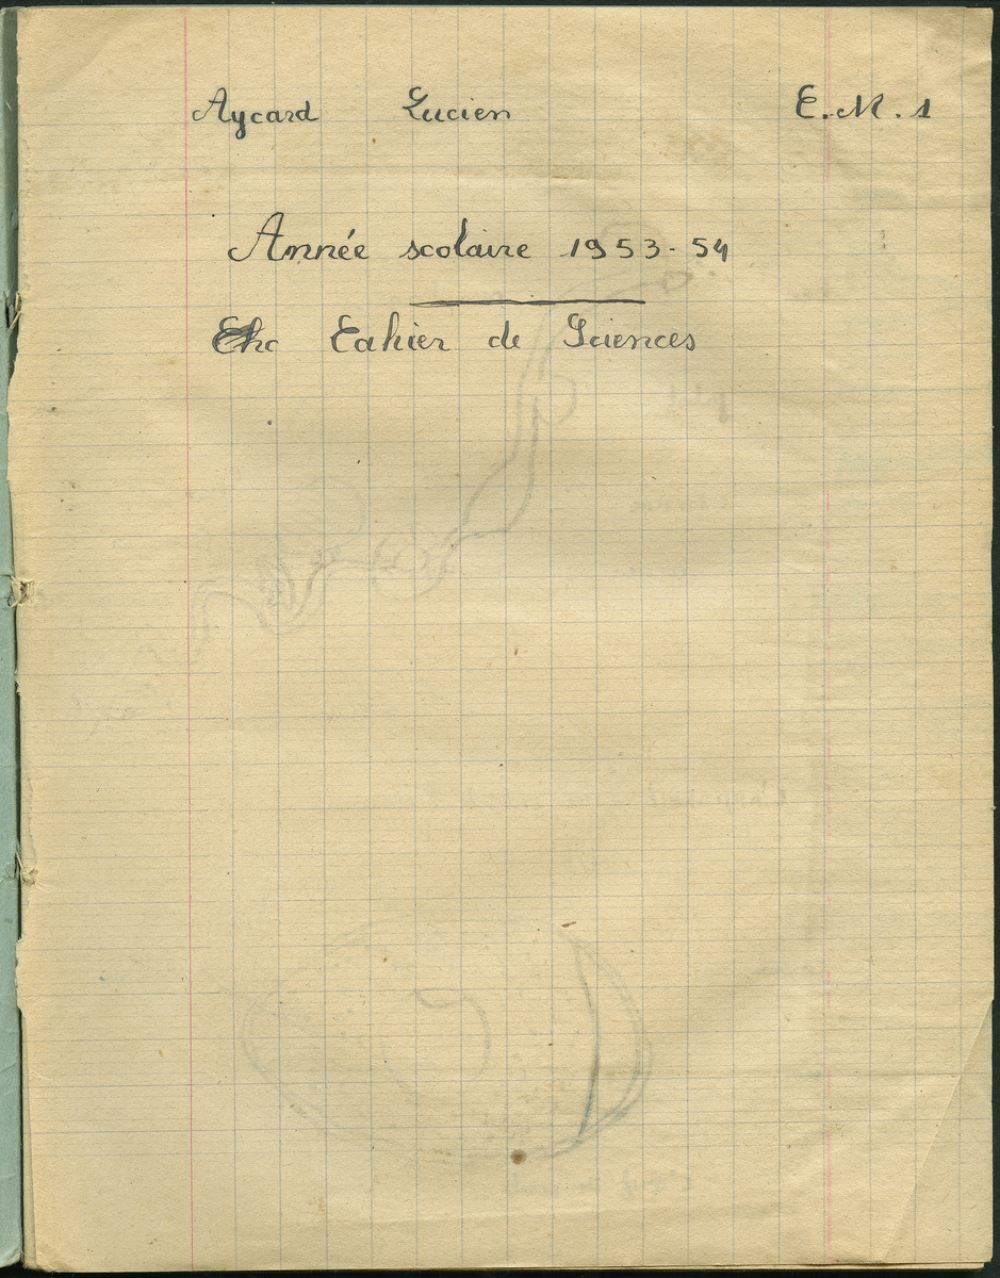 Aycard Lucien E.M.1
Année scolaire 1953-54
Cahier de Sciences